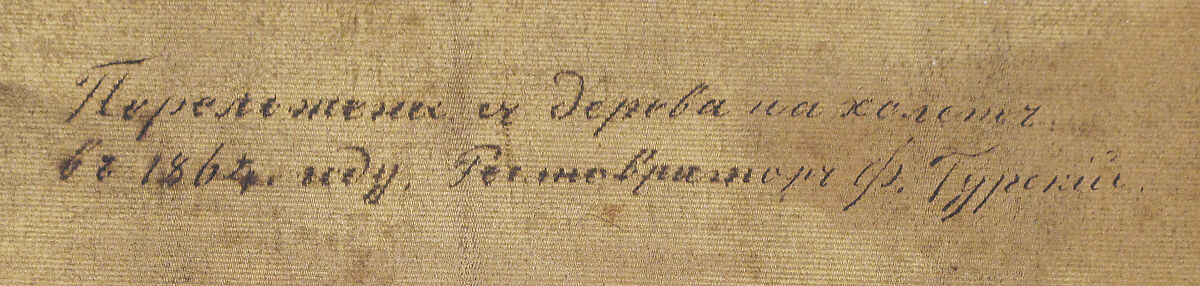 Переложена съ дерева на холстъ
въ 1864 году. Реставраторъ Ф. Турскій.